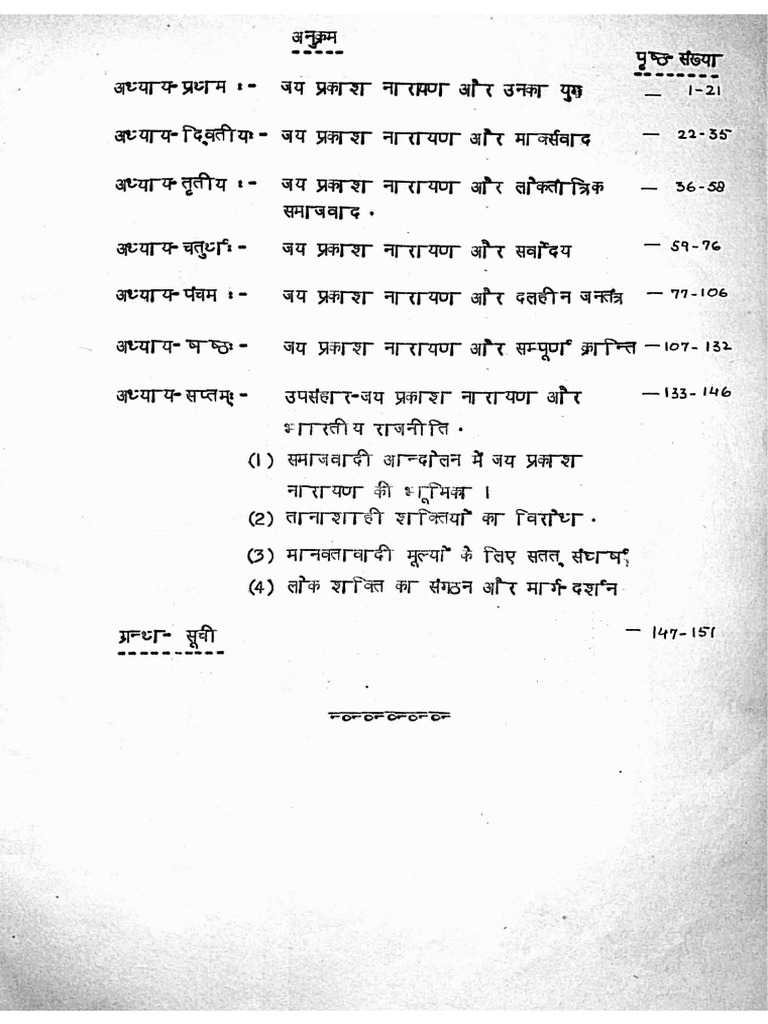 अनुक्रम
पृष्ठ-संख्या
अध्याय-प्रथम :- जय प्रकाश नारायण और उनका युग — 1-21
अध्याय-द्वितीयः- जय प्रकाश नारायण और मार्क्सवाद — 22-35
अध्याय-तृतीय :- जय प्रकाश नारायण और लोकतांत्रिक — 36-58
समाजवाद .
अध्याय-चतुर्थः- जय प्रकाश नारायण और सर्वोदय — 59-76
अध्याय-पंचम :- जय प्रकाश नारायण और दलहीन जनतंत्र — 77-106
अध्याय-षष्ठः- जय प्रकाश नारायण और सम्पूर्ण क्रान्ति — 107-132
अध्याय-सप्तम्ः- उपसंहार-जय प्रकाश नारायण और — 133-146
भारतीय राजनीति .
(1) समाजवादी आन्दोलन में जय प्रकाश
नारायण की भूमिका ।
(2) तानाशाही शक्तियों का विरोध .
(3) मानवतावादी मूल्यों के लिए सतत् संघर्ष
(4) लोक शक्ति का संगठन और मार्ग-दर्शन
ग्रन्थ- सूची — 147-151